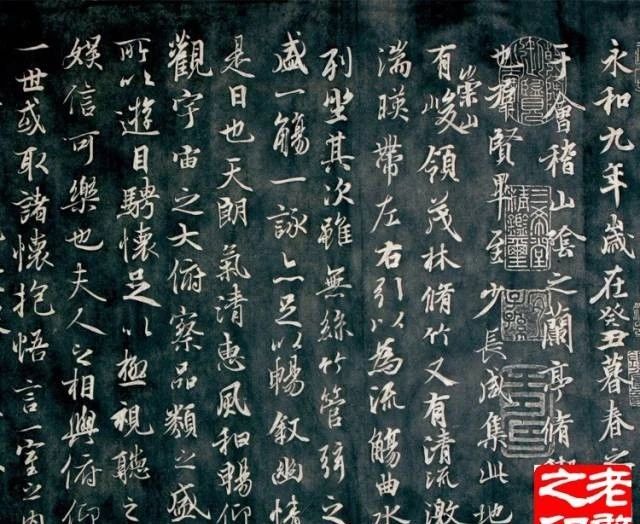 永和九年歲在癸丑暮春之
于會稽山陰之蘭亭脩禊
也群賢畢至少長咸集此地
有崇山峻領茂林脩竹又有清流激
湍暎帶左右引以為流觴曲水
列坐其次雖無絲竹管弦之
盛一觴一詠亦足以暢敘幽情
是日也天朗氣清惠風和暢仰
觀宇宙之大俯察品類之盛
所以遊目騁懷足以極視聽之
娛信可樂也夫人之相與俯仰
一世或取諸懷抱悟言一室之內